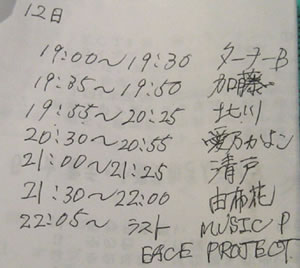 12日
19:00～19:30 ターナーB
19:35～19:50 加藤
19:55～20:25 北川
20:30～20:55 愛乃かよこ
21:00～21:25 清戸
21:30～22:00 由布花
22:05～ラスト MUSIC P
FACE PROJECT